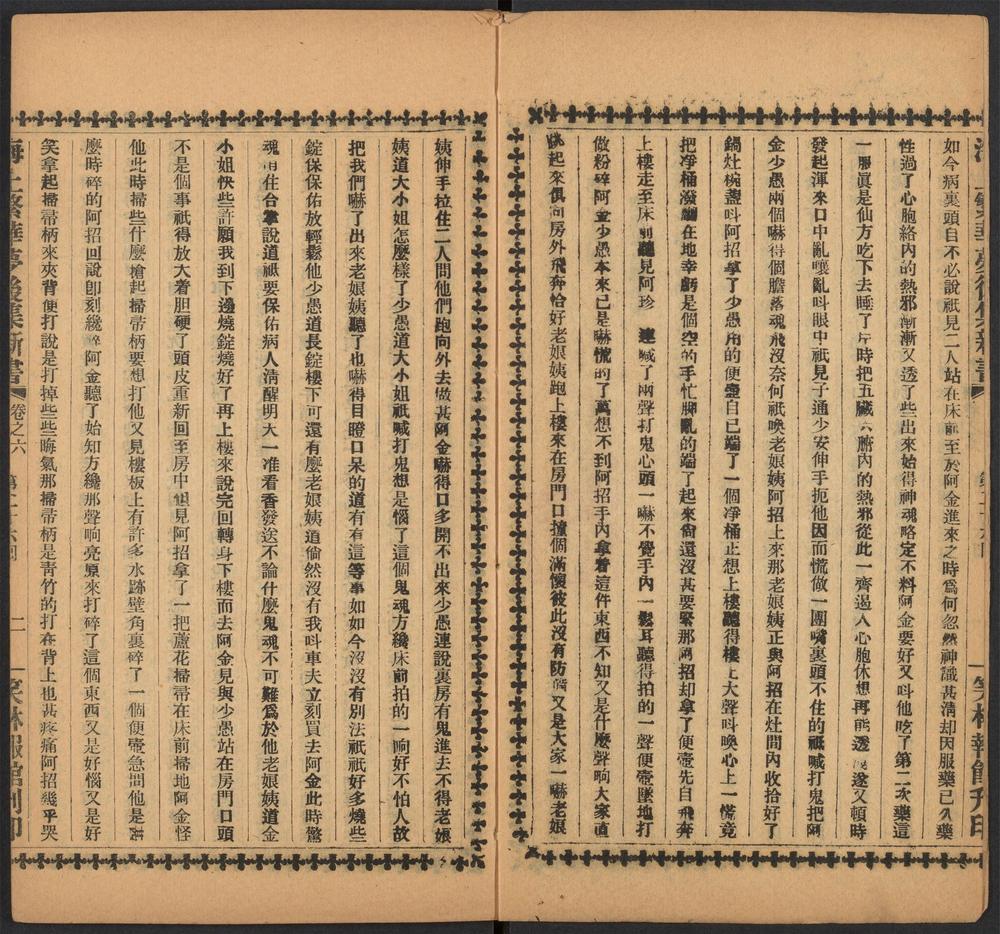 如今病裏頭自不必說祇見二人站在床前至於阿金進來之時爲何忽然神識甚淸却因服藥已久藥
性過了心胞絡內的熱邪漸漸又透了些出來始得神魂略定不料阿金要好又呌他吃了第二次藥這
一服眞是仙方吃下去睡了片時把五臟六腑內的熱邪從此一齊遏入心胞休想再能透遂又頓時
發起渾來口中亂嚷亂呌眼中祇見子通少安伸手扼他因而慌做一團嘴裏頭不住的祇喊打鬼把阿
金少愚兩個嚇得個膽落魂飛沒奈何祇喚老娘姨阿招上來那老娘姨正與阿招在灶間內收拾好了
鍋灶椀盞呌阿招拿了少愚用的便壺自已端了一個凈桶正想上樓聽得樓上大聲呌喚心上一慌竟
把凈桶潑翻在地幸虧是個空的手忙脚亂的端了起來尙還沒甚要緊那阿招却拿了便壺先自飛奔
上樓走至床前聽見阿珍連喊了兩聲打鬼心頭一嚇不覺手內一鬆耳聽得拍的一聲便壺墜地打
做粉碎阿金少愚本來已是嚇慌的了萬想不到阿招手內拿着這件東西不知又是什麼聲响大家直
跳起來俱向房外飛奔恰好老娘姨跑上樓來在房門口撞個滿懷彼此沒有防備又是大家一嚇老娘
姨伸手拉住二人問他們跑向外去做甚阿金嚇得口多開不出來少愚連說裏房有鬼進去不得老娘
姨道大小姐怎麼樣了少愚道大小姐祇喊打鬼想是惱了這個鬼魂方纔床前拍的一响好不怕人故
把我們嚇了出來老娘姨聽了也嚇得目瞪口呆的道有有這等事如如今沒沒有別法祇祇好多燒些
錠保保佑放輕鬆他少愚道長錠樓下可還有麼老娘姨道倘然沒有我呌車夫立刻買去阿金此時驚
魂甫住合掌說道祇要保佑病人淸醒明天一准看香發送不論什麼鬼魂不可難爲於他老娘姨道金
小姐快些許願我到下邊燒錠燒好了再上樓來說完回轉身下樓而去阿金見與少愚站在房門口頭
不是個事祇得放大着胆硬了頭皮重新回至房中但見阿招拿了一把蘆花掃帚在床前掃地阿金怪
他此時掃些什麼搶起掃帚柄要想打他又見樓板上有許多水跡壁角裏碎了一個便壺急問他是甚
麼時碎的阿招回說卽刻纔碎阿金聽了始知方纔那聲响亮原來打碎了這個東西又是好惱又是好
笑拿起掃帚柄來夾背便打說是打掉些些晦氣那掃帚柄是靑竹的打在背上也甚疼痛阿招幾乎哭
海上繁華夢後集新書 卷之六 二 笑林報館刊印